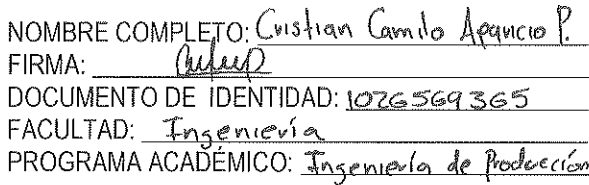 NOMBRE COMPLETO: Cristian Camilo Aparicio P.
FIRMA:
DOCUMENTO DE IDENTIDAD: 1026569365
FACULTAD: Ingeniería
PROGRAMA ACADÉMICO: Ingeniería de Producción